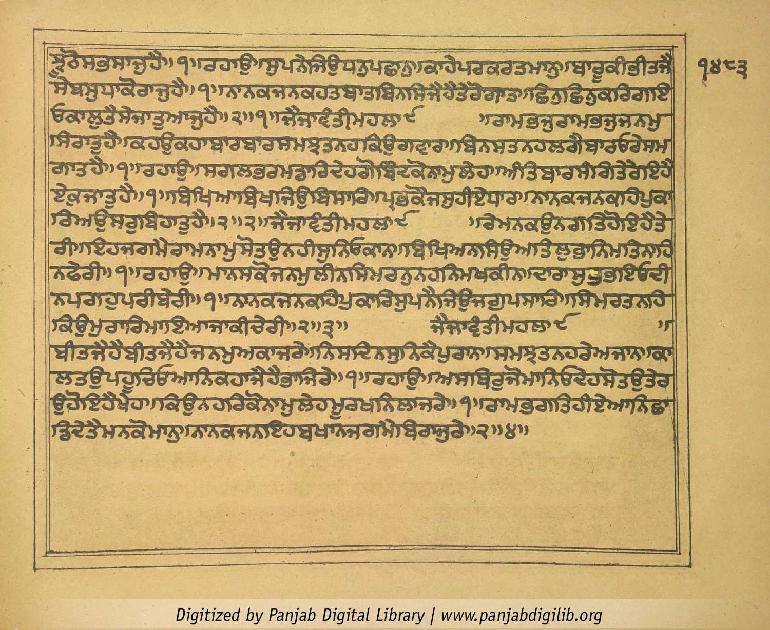 ਝੂਠੋਸਭਸਾਜੁਹੈ॥੧॥ਰਹਾਉ॥ਸੁਪਨੇਜਿਉਧਨੁਪਛਾਨੁ॥ਕਾਹੇਪਰਕਰਤਮਾਨੁ॥ਬਾਰੂਕੀਭੀਤਜੈ ੧੪੮੩
ਸੇਬਸੁਧਾਕੋਰਾਜੁਹੈ॥੧॥ਨਾਨਕਜਨਕਹਤਬਾਤਬਿਨਸਿਜੈਹੈਤੇਰੋਗਾਤ॥ਛਿਨੁਛਿਨੁਕਰਿਗਇ
ਓਕਾਲੁਤੈਸੇਜਾਤੁਆਜੁਹੈ॥੨॥੧॥ਜੈਜਾਵੰਤੀਮਹਲਾ੯ ॥ਰਾਮਭਜੁਰਾਮਭਜੁਜਨਮੁ
ਸਿਰਾਤੁਹੈ॥ਕਹਉਕਹਾਬਾਰਬਾਰਸਮਝਤਨਹਕਿਉਗਵਾਰ॥ਬਿਨਸਤਨਹਲਗੈਬਾਰਓਰੇਸਮ
ਗਾਤਹੈ॥੧॥ਰਹਾਉ॥ਸਗਲਭਰਮਡਾਰਿਦੇਹਗੋਬਿੰਦਕੋਨਾਮੁਲੇਹ॥ਅੰਤਿਬਾਰਸੰਗਿਤੇਰੈਇਹੈ
ਏਕੁਜਾਤੁਹੈ॥੧॥ਬਿਖਿਆਬਿਖਜਿਉਬਿਸਾਰਿ॥ਪ੍ਰਭਕੌਜਸੁਹੀਏਧਾਰ॥ਨਾਨਕਜਨਕਹਿਪੁਕਾ
ਰਿਅਉਸਰੁਬਿਹਾਤੁਹੈ॥੨॥੨॥ਜੈਜਾਵੰਤੀਮਹਲਾ੯ ॥ਰੇਮਨਕਉਨਗਤਿਹੋਇਹੈਤੇ
ਰੀ॥ਇਹਜਗਮੈਰਾਮਨਾਮੁਸੋਤਉਨਹੀਸੁਨਿਓਕਾਨ॥ਬਿਖਿਅਨਸਿਉਅਤਿਲੁਭਾਨਿਮਤਿਨਾਹਿ
ਨਫੇਰੀ॥੧॥ਰਹਾਉ॥ਮਾਨਸਕੋਜਨਮੁਲੀਨਸਿਮਰਨੁਨਹਨਿਮਖਕੀਨ॥ਦਾਰਾਸੁਖਭਇਓਦੀ
ਨਪਗਹੁਪਰੀਬੇਰੀ॥੧॥ਨਾਨਕਜਨਕਹਿਪੁਕਾਰਿਸੁਪਨੈਜਿਉਜਗੁਪਸਾਰਿ॥ਸਿਮਰਤਨਹਿ
ਕਿਉਮੁਰਾਰਿਮਾਇਆਜਾਕੀਚੇਰੀ॥੨॥੩॥ ਜੈਜਾਵੰਤੀਮਹਲਾ੯ ॥
ਬੀਤਜੈਹੈਬੀਤਜੈਹੈਜਨਮੁਅਕਾਜਰੇ॥ਨਿਸਦਿਨਸੁਨਿਕੈਪੁਰਾਨ॥ਸਮਝਤਨਹਰੇਅਜਾਨ॥ਕਾ
ਲਤਉਪਹੂਚਿਓਆਨਿਕਹਾਜੈਹੈਭਾਜਿਰੇ॥੧॥ਰਹਾਉ॥ਅਸਥਿਰੁਜੋਮਾਨਿਓਦੇਹਸੋਤਉਤੇਰ
ਉਹੋਇਹੈਖੇਹ॥ਕਿਉਨਹਰਿਕੋਨਾਮੁਲੇਹਮੂਰਖਨਿਲਾਜਰੇ॥੧॥ਰਾਮਭਗਤਿਹੀਏਆਨਿਛਾ
ਡਿਦੇਤੈਮਨਕੋਮਾਨੁ॥ਨਾਨਕਜਨਇਹਬਖਾਨਜਗਮੈਬਿਰਾਜੁਰੇ॥੨॥੪॥
Digitized by Panjab Digital Library | www.panjabdigilib.org